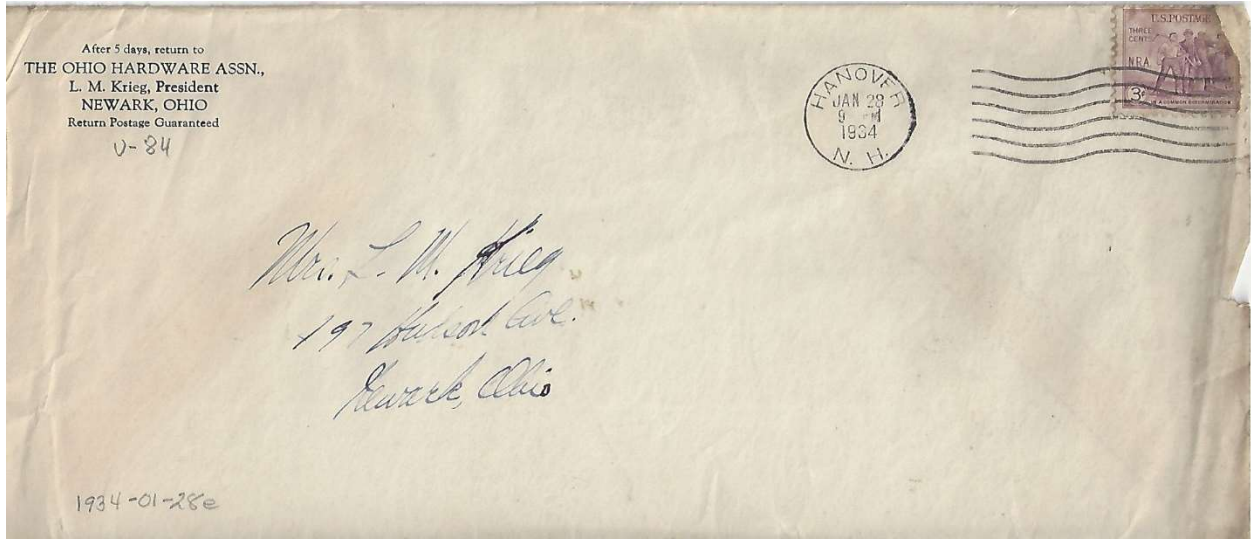 After 5 days, return to
THE OHIO HARDWARE ASSN.,
L. M. Krieg, President
NEWARK, OHIO
Return Postage Guaranteed
U-84
HANOVER
JAN 28
9 PM
1934
N. H.
U.S. POSTAGE
THREE
CENTS
NRA
3¢
IN A COMMON DETERMINATION
Mrs. L. M. Krieg
197 Hudson Ave.
Newark, Ohio
1934-01-28e